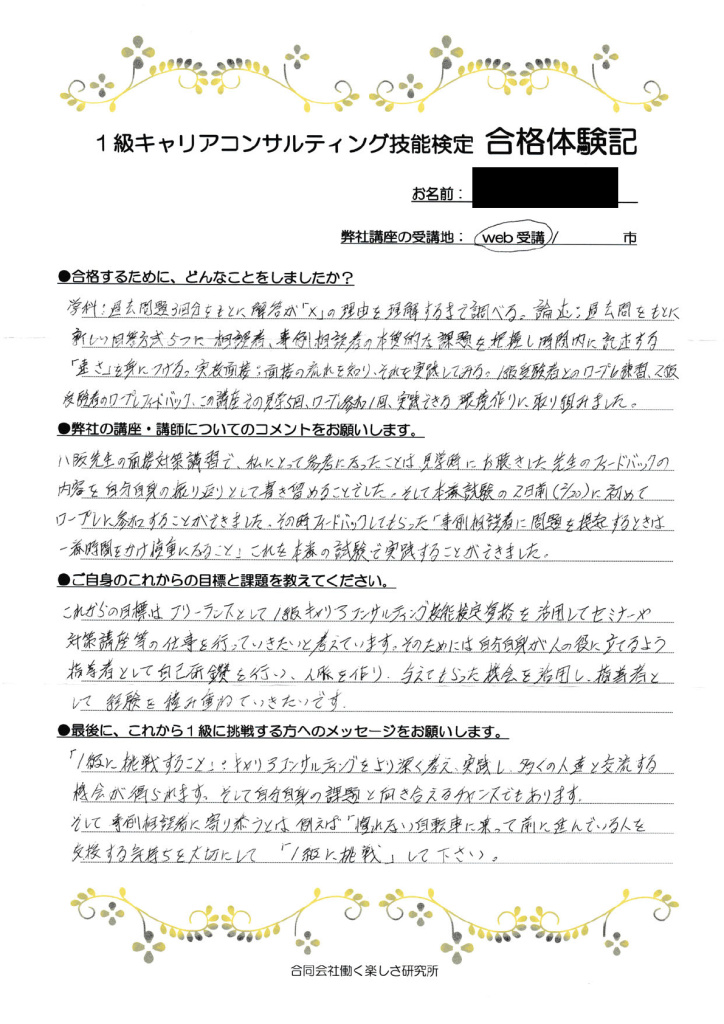 1級キャリアコンサルティング技能検定 合格体験記
お名前：
弊社講座の受講地： web受講 / 市
●合格するために、どんなことをしましたか？
学科：過去問題3回分をもとに解答が「×」の理由を理解するまで調べる。論述：過去問をもとに
新しい回答方式5つに相談者、事例相談者の本質的な課題を把握し時間内に記述する
「速さ」を身につける。実技面接：面接の流れを知り、それを実践してみる。1級受験者とのロープレ練習、2級
受験者のロープレフィードバック、この講座での見学5回、ロープレ参加1回、実践できる環境作りに取り組みました。
●弊社の講座・講師についてのコメントをお願いします。
八阪先生の面接対策講習で、私にとって参考になったことは見学時にお聴きした先生のフィードバックの
内容を自分自身の振り返りとして書き留めることでした。そして本番試験の2日前(2/20)に初めて
ロープレに参加することができました。その時フィードバックしてもらった「事例相談者に問題を提起するときは
一番時間をかけ慎重になること」これを本番の試験で実践することができました。
●ご自身のこれからの目標と課題を教えてください。
これからの目標はフリーランスとして1級キャリアコンサルティング技能検定資格を活用してセミナーや
対策講座等の仕事を行っていきたいと考えています。そのためには自分自身が人の役に立てるよう
指導者として自己研鑽を行い、人脈を作り、与えてもらった機会を活用し、指導者と
して経験を積み重ねていきたいです。
●最後に、これから1級に挑戦する方へのメッセージをお願いします。
「1級に挑戦すること」：キャリアコンサルティングをより深く考え、実践し、多くの人達と交流する
機会が得られます。そして自分自身の課題と向き合えるチャンスでもあります。
そして事例相談者に寄り添うとは例えば「慣れない自転車に乗って前に進んでいる人を
支援する気持ちを大切にして「1級に挑戦」して下さい。
合同会社働く楽しさ研究所